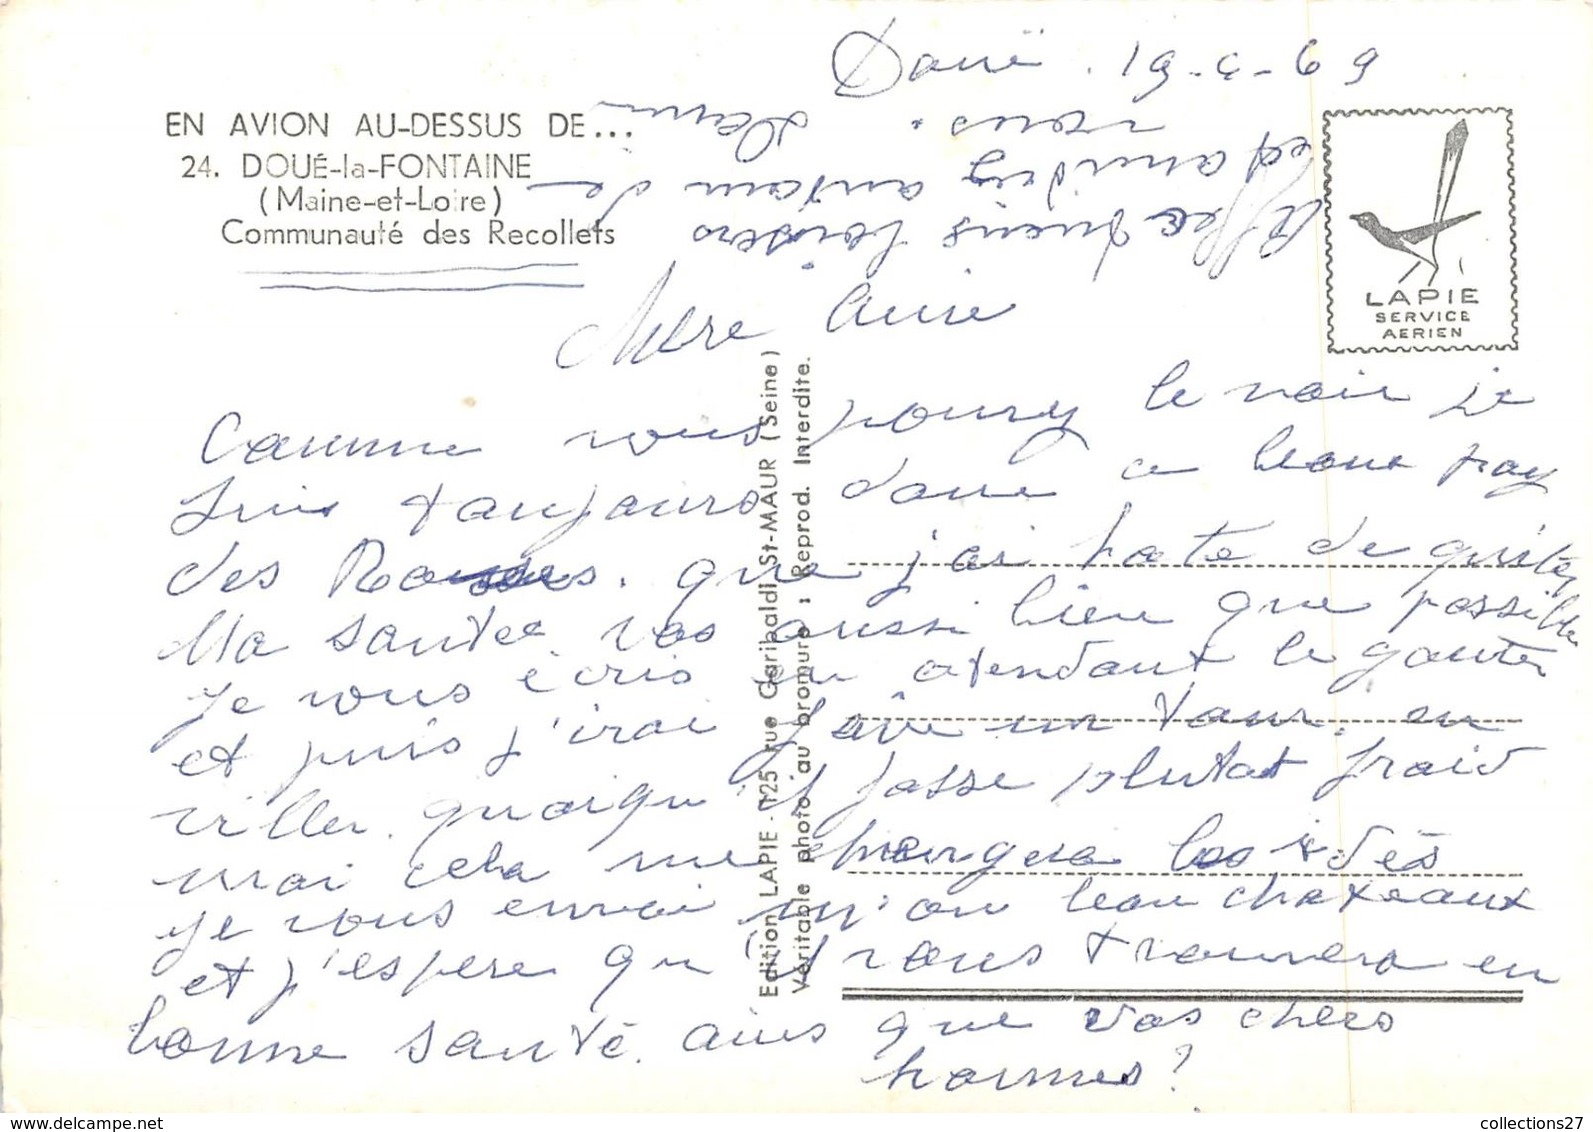 Doué. 19-9-69
EN AVION AU-DESSUS DE...
24. DOUÉ-la-FONTAINE
(Maine-et-Loire)
Communauté des Recollets
LAPIE
SERVICE
AERIEN
Mere
Comme vous pouvez le voir je
suis toujours dans ce beau pay
des Roses. que j'ai hate de quitter
Ma santee vas aussi bien que possible
je vous écris en atendant le gouter
et puis j'irai faire un tour. en
ville. quoiqu'il fasse plutot froid
mai cela me changera les idés
je vous envoi un beau chateaux
et j'espere qu'il vous trouvera en
bonne santé. ains que vos chers
hommes?
Affectueux baisers
et amitiez autour de
vous.
Edition LAPIE - 125 rue Garibaldi St-MAUR (Seine)
Véritable photo au bromure : Reprod. Interdite.
collections27